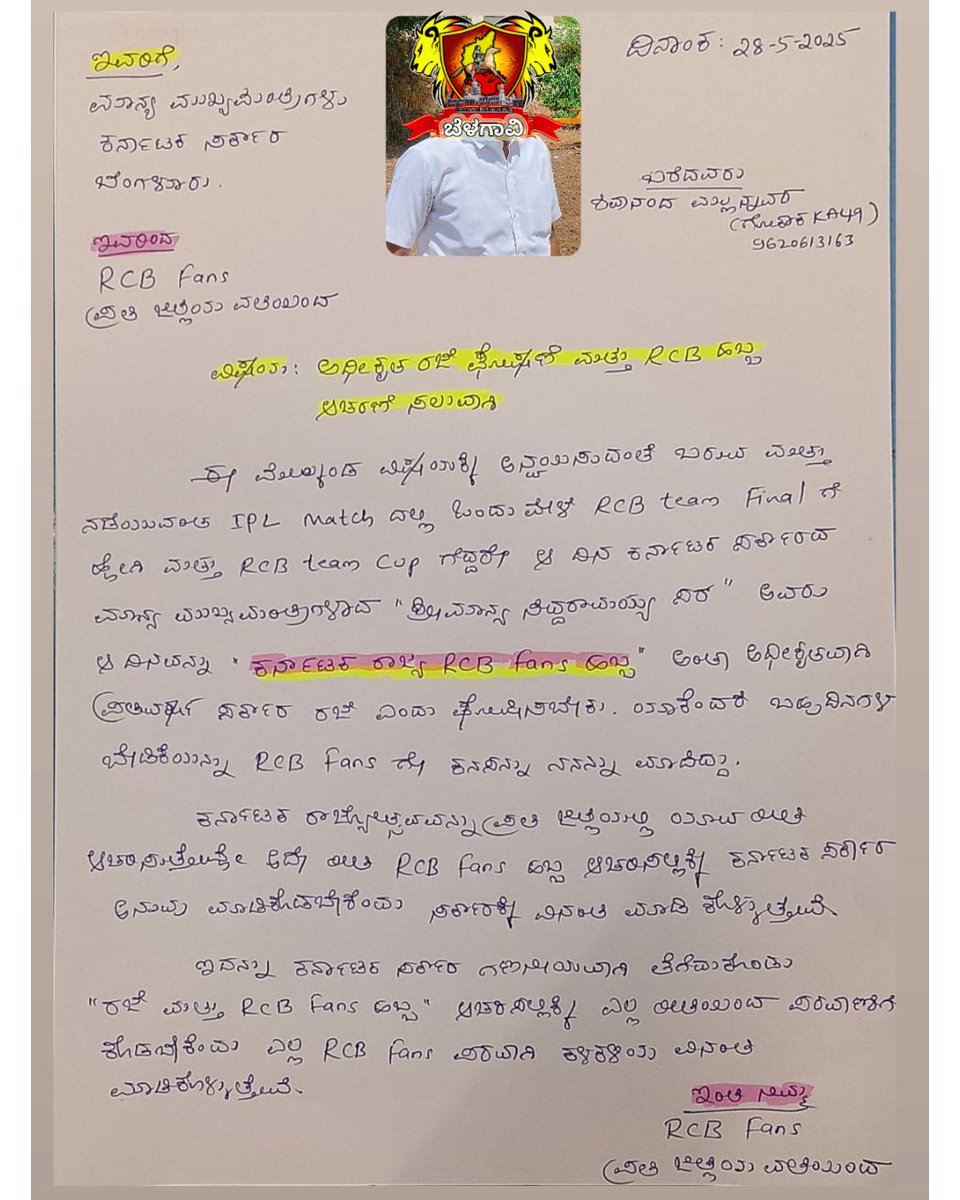 ಬೆಳಗಾವಿ
ದಿನಾಂಕ: 28-5-2025
ಇವರಿಗೆ,
ಮಾನ್ಯ ಮುಖ್ಯಮಂತ್ರಿಗಳು
ಕರ್ನಾಟಕ ಸರ್ಕಾರ
ಬೆಂಗಳೂರು.
ಬರೆದವರು
ಶಿವಾನಂದ ಮಲ್ಲನ್ನವರ
(ಗೋಕಾಕ KA49)
9620613163
ಇವರಿಂದ
RCB Fans
ಪ್ರತಿ ಜಿಲ್ಲೆಯ ವತಿಯಿಂದ
ವಿಷಯ: ಅಧೀಕೃತ ರಜೆ ಘೋಷಣೆ ಮತ್ತು RCB ಹಬ್ಬ
ಆಚರಣೆ ಸಲುವಾಗಿ
ಈ ಮೇಲ್ಕಂಡ ವಿಷಯಕ್ಕೆ ಅನ್ವಯಿಸುವಂತೆ ಬರುವ ಮತ್ತು
ನಡೆಯುವಂತ IPL Match ದಲ್ಲಿ ಒಂದು ವೇಳೆ RCB team Final ಗೆ
ಹೋಗಿ ಮತ್ತು RCB team Cup ಗೆದ್ದರೇ ಆ ದಿನ ಕರ್ನಾಟಕ ಸರ್ಕಾರದ
ಮಾನ್ಯ ಮುಖ್ಯಮಂತ್ರಿಗಳಾದ "ಶ್ರೀಮಾನ್ಯ ಸಿದ್ದರಾಮಯ್ಯ ಸರ" ಅವರು
ಆ ದಿನವನ್ನು "ಕರ್ನಾಟಕ ರಾಜ್ಯ RCB fans ಹಬ್ಬ" ಅಂತಾ ಅಧೀಕೃತವಾಗಿ
ಪ್ರತಿವರ್ಷ ಸರ್ಕಾರ ರಜೆ ಎಂದು ಘೋಷಿಸಬೇಕು. ಯಾಕೆಂದರೆ ಬಹುದಿನಗಳ
ಬೇಡಿಕೆಯನ್ನು RCB Fans ಗೇ ಕನಸನ್ನು ನನಸನ್ನು ಮಾಡಿದ್ದು.
ಕರ್ನಾಟಕ ರಾಜ್ಯೋತ್ಸವವನ್ನು ಪ್ರತಿ ಜಿಲ್ಲೆಯಲ್ಲಿ ಯಾವ ರೀತಿ
ಆಚರಿಸುತ್ತೇವೋ ಅದೇ ರೀತಿ RCB fans ಹಬ್ಬ ಆಚರಿಸಲಿಕ್ಕೆ ಕರ್ನಾಟಕ ಸರ್ಕಾರ
ಅನುವು ಮಾಡಿಕೊಡಬೇಕೆಂದು ಸರ್ಕಾರಕ್ಕೆ ವಿನಂತಿ ಮಾಡಿ ಕೊಳ್ಳುತ್ತೇವೆ.
ಇದನ್ನು ಕರ್ನಾಟಕ ಸರ್ಕಾರ ಗಣನೀಯವಾಗಿ ತೆಗೆದುಕೊಂಡು
"ರಜೆ ಮತ್ತು RCB fans ಹಬ್ಬ" ಆಚರಿಸಲಿಕ್ಕೆ ಎಲ್ಲ ರೀತಿಯಿಂದ ಪರವಾಣಿಗೆ
ಕೊಡಬೇಕೆಂದು ಎಲ್ಲ RCB fans ಪರವಾಗಿ ಕಳಕಳಿಯ ವಿನಂತಿ
ಮಾಡಿಕೊಳ್ಳುತ್ತೇವೆ.
ಇಂತಿ ನಿಮ್ಮ
RCB Fans
ಪ್ರತಿ ಜಿಲ್ಲೆಯ ವತಿಯಿಂದ